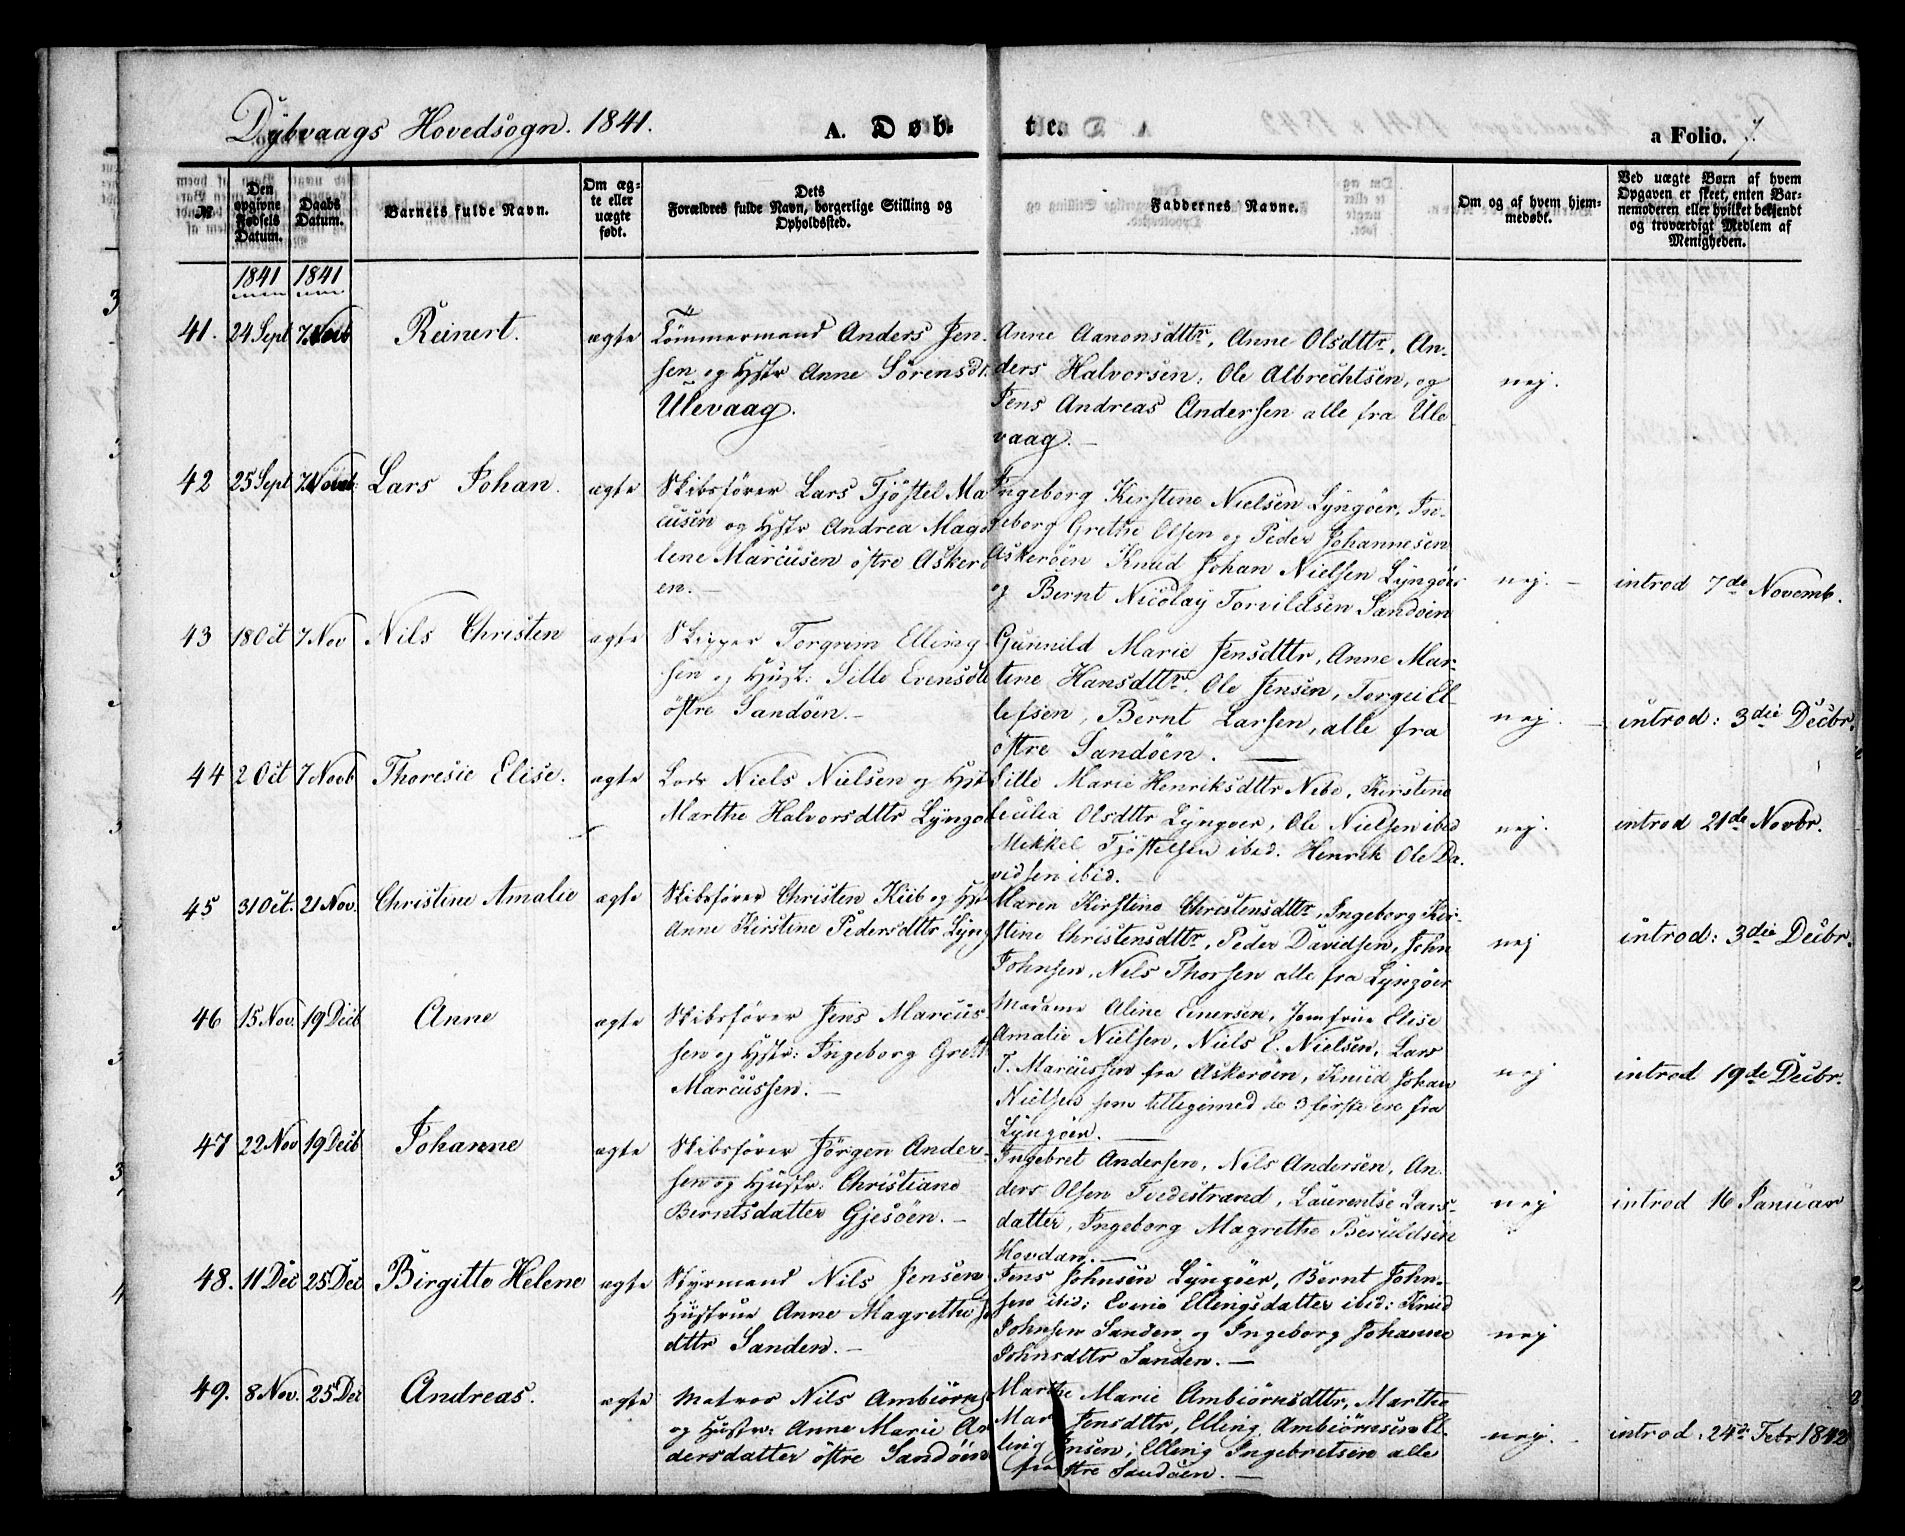 Dybvaags Hovedsogn. 1841.
A. Døb-
te.
a Folio. 7.
№
Den opgivne Fødsels Datum.
Daabs Datum.
Barnets fulde Navn.
Om ægte eller uægte født.
Dets Forældres fulde Navn, borgerlige Stilling og Opholdssted.
Faddernes Navne.
Om og af hvem hjemmedøbt.
Ved uægte Børn af hvem Opgaven er skeet, enten Barnemoderen eller hvilket bekjendt og troværdigt Medlem af Menigheden.
1841 1841
41. 24 Sept 7 Novb Reinert. ægte
Tömmermand Anders Jen-
sen og Hstr Anne Sörensdt.
Ulevaag.
Anne Aanonsdttr, Anne Olsdttr, An-
ders Halvorsen, Ole Albrechtsen, og
Jens Andreas Andersen alle fra Ule
vaag. –
nej.
42 25 Sept 7 Novb: Lars Johan. ægte
Skibsförer Lars Tjöstel Ma
cusen og Hstr Andrea Magd
lene Marcusen östre Askerö
en. –
Ingeborg Kirstine Nielsen Lyngöer, In-
geborg Grethe Olsen og Peder Johannesen
Askeröen Knud Johan Nielsen Lyngöer
og Bernt Nicolay Torvildsen Sandöen
nej. –
introd 7de Novemb.
43 18 Oct 7 Nov Nils Christen ægte
Skipper Torgrim Elling
sen og Hust: Sille Evensdtt
östre Sandöen. –
Gunnild Marie Jensdttr, Anne Mar-
tine Hansdttr. Ole Jensen, Torgei El-
lefsen, Bernt Larsen, alle fra
östre Sandöen. –
nej. –
introd: 3die Decbr.
44 2 Oct 7 Novb Thoresie Elise. ægte
Lods Niels Nielsen og Hst
Marthe Halvorsdttr Lyngö
Sille Marie Henriksdttr Nebe, Kirstine
Cecilia Olsdttr Lyngöer, Ole Nielsen ibid
Mikkel Tjöstelsen ibid. Henrik Ole Da-
vidsen ibid.
nej.
introd 21de Novbr.
45 31 Oct. 21 Nov. Christine Amalie ægte
Skibsförer Christen Kiib og Hst
Anne Kirstine Pedersdttr Lyng
Maren Kirstine Christensdttr, Ingeborg Kir-
stine Christensdttr, Peder Davidsen, John
Johnsen, Nels Thorsen alle fra Lyngöer
nej
introd: 3die Decbr.
46 15 Nov. 19 Decb Anne ægte
Skibsförer Jens Marcus-
sen og Hstr: Ingeborg Greth
Marcussen. –
Madame Aline Einersen, Jomfrue Elise
Amalie Nielsen, Niels E. Nielsen, Lars
T. Marcussen fra Askeröen, Knud Johan
Nielsen som tilligemed de 3 förste ere fra
Lyngöer. –
nej
introd 19de Decbr.
47 22 Nov 19 Decb Johanne ægte
Skibsförer Jörgen Ander-
sen og Hustr: Christiane
Berntsdatter Gjesöen. –
Ingebret Andersen, Nils Andersen, An-
ders Olsen Terdestrand, Laurentse Lars-
datter, Ingeborg Magrethe Beruldsen
Hovdan. –
nej
introd 16 Januar
48. 11 Dec 25 Dec Birgitte Helene ægte
Styrmand Nils Jensen
Hustrue Anne Magrethe Jo
dttr Sanden. –
Jens Johnsen Lyngöer, Bernt John-
sen ibid; Evene Ellingsdatter ibid: Knud
Johnsen Sanden og Ingeborg Johanne
Johnsdttr Sanden. –
nej
49. 8 Nov. 25 Dec Andreas. ægte
Matros Nils Ambiörns
og Hustr: Anne Marie An
dersdatter östre Sandöen
Marthe Marie Ambiörnsdttr, Marthe
Mar Jensdttr, Elling Ambiörnsen El-
ling Jnsen, Elling Ingebretsen alle
fra östre Sandöen. –
nej. –
introd. 24de Febr 1842